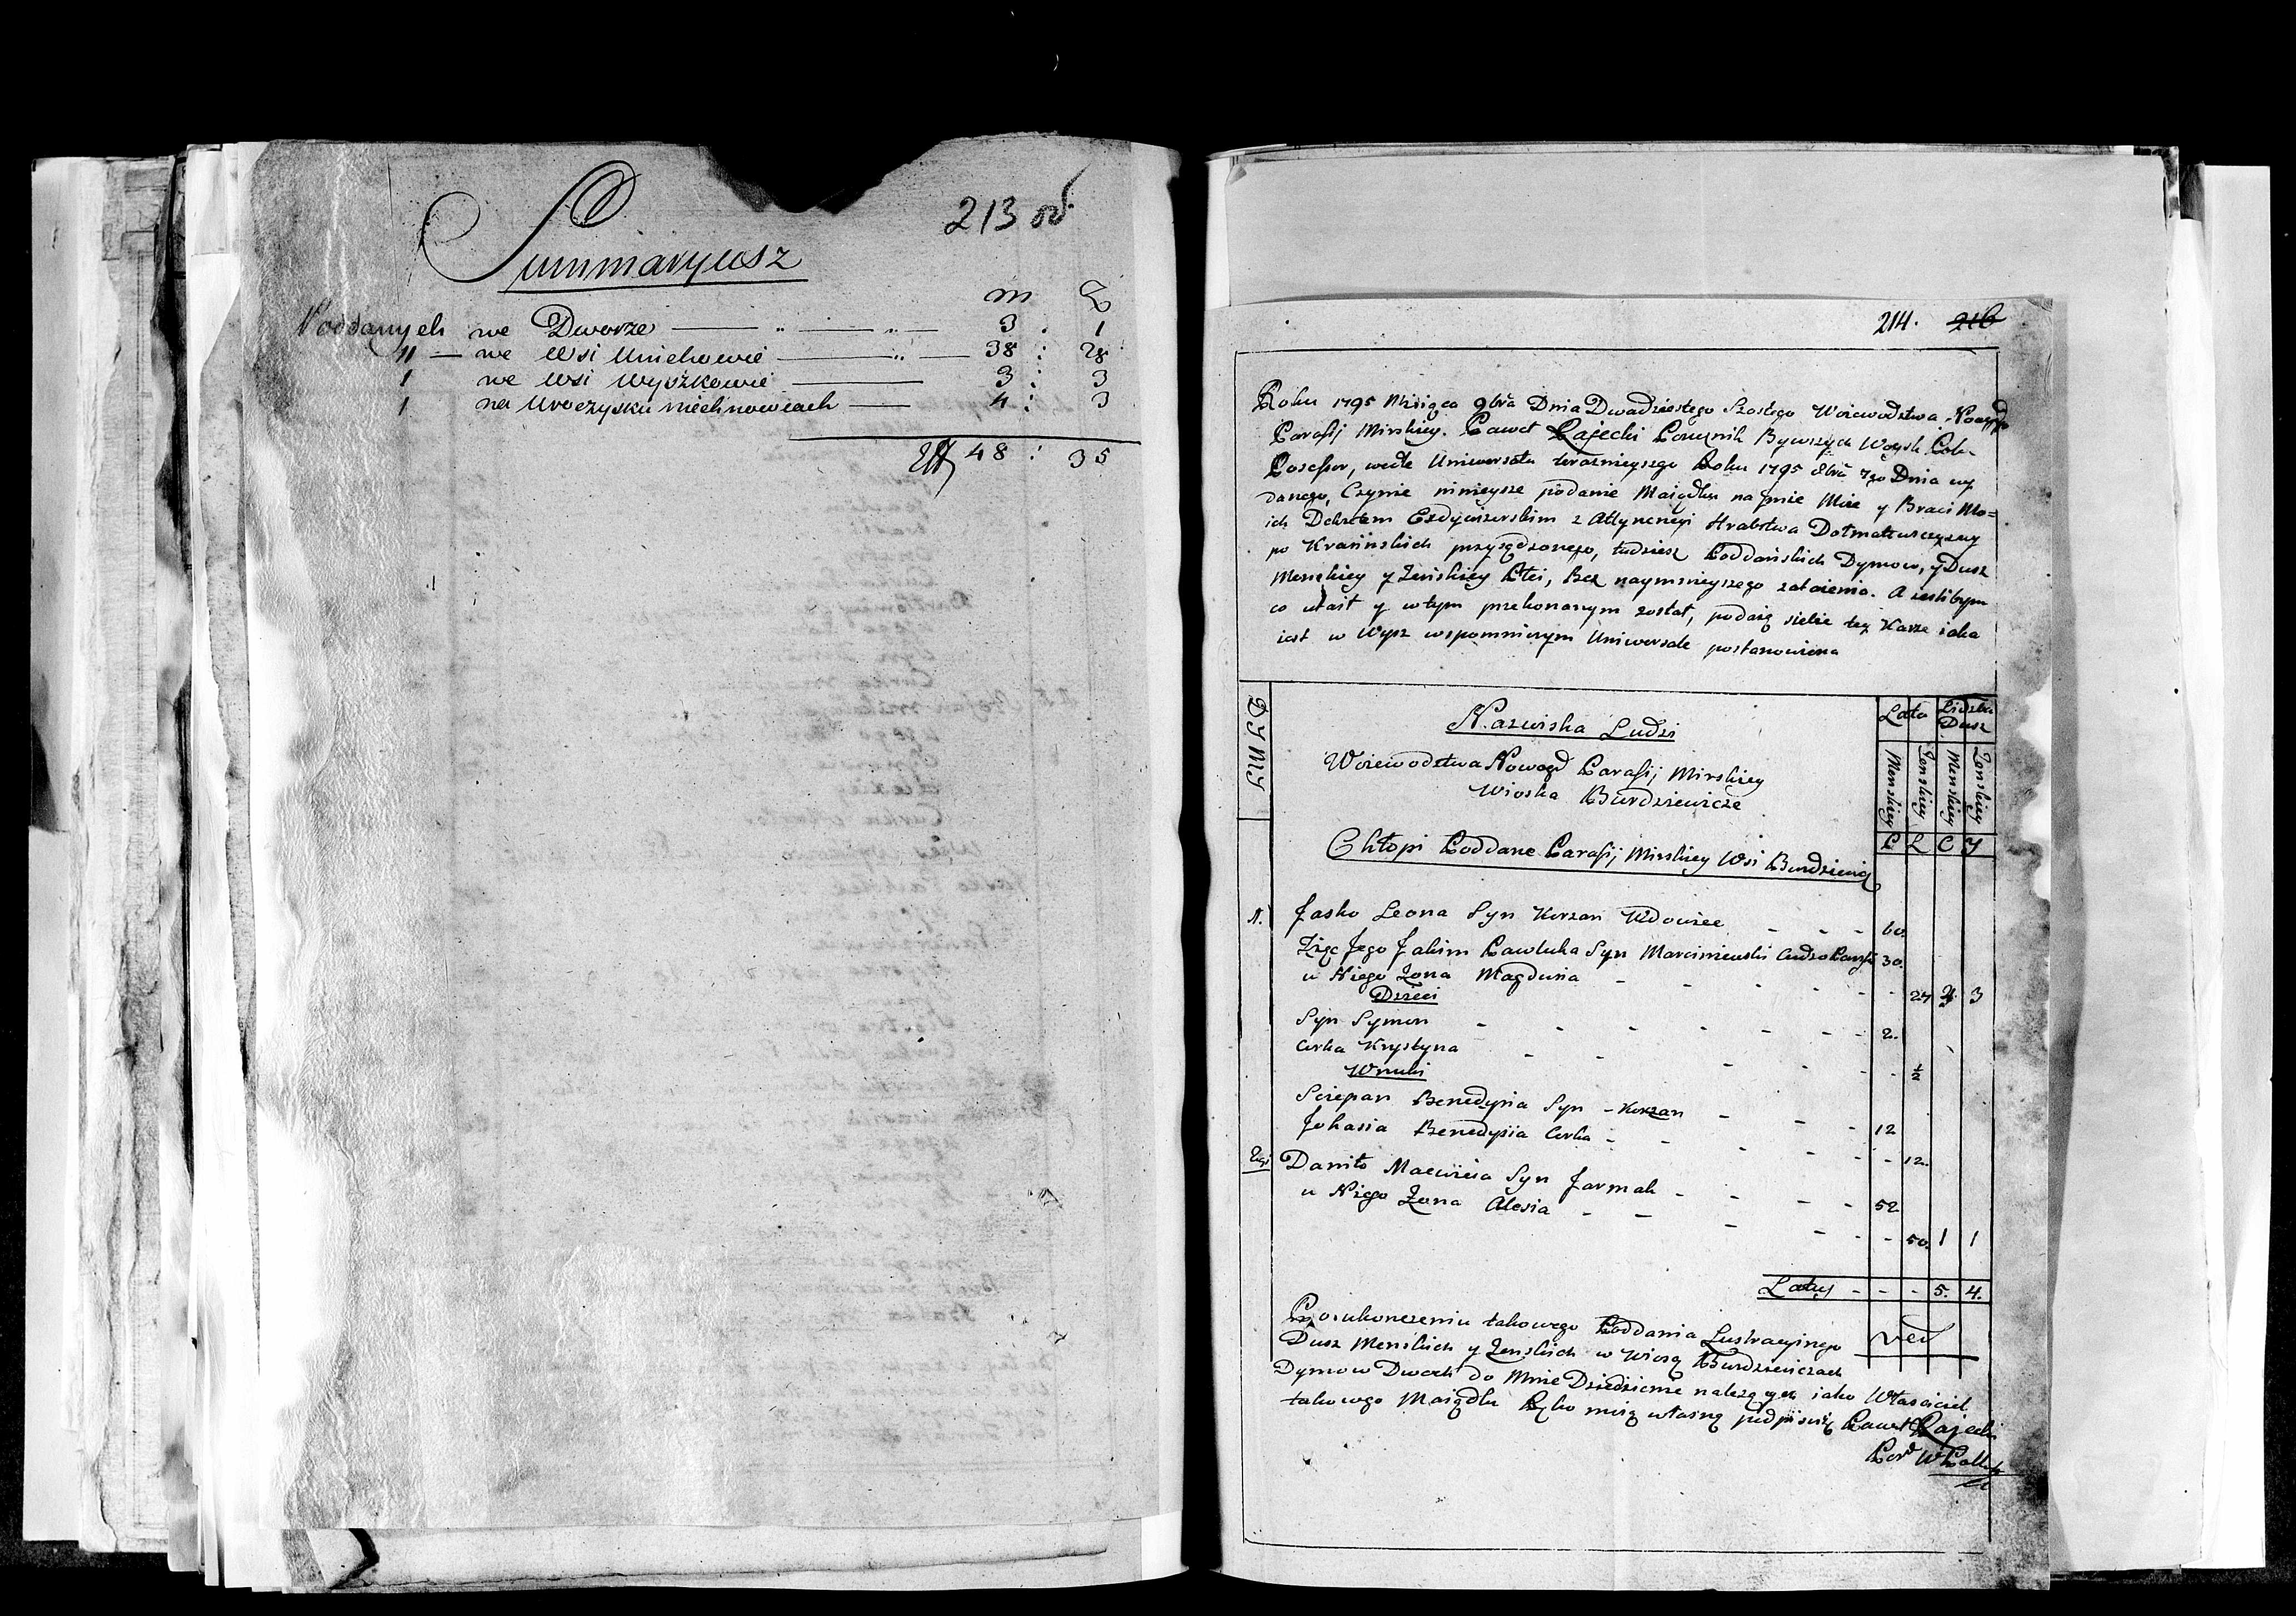 213 об
Summaryusz
m Ż
Poddanych we Dworze 3 : 1
11 — we Wsi Uniehowie 38 : 28
1 we Wsi Wyszkowie 3 : 3
1 na Uroczysku niechnowicach 4 : 3
48 : 35
214. 216
Roku 1795 Miesiąca 9bra Dnia Dwadziestego Szostego Woiewodztwa Nowogr
Parafij Mirskiey. Paweł Rajecki Porucznik Bywszych Woysk Pols
Possessor, wedle Uniwersału teraznieyszego Roku 1795 8bra 7go Dnia wy
danego, Czynie ninieysze podanie Maiątku na mnie Mnie y Braci Mo=
ich Dekretem Exdywizorskim z Attynencyi Hrabstwa Dołmatowczyzny
po Krasińskich przysądzonego, tudziesz Poddańskich Dymow, y Dusz
Menskiey y Zeńskiey Płci, Bez naymnieyszego zataienia. A iesli bym
co utaił y w tym przekonanym został, podaię siebie tey Karze iaka
iest w Wysz wspomnionym Uniwersale postanowiona
DYMY
Nazwiska Ludzi
Lata Liczba Dusz
Woiewodztwa Nowogd Parafij Mirskiey
Wioska Burdziewicze
Menskiey Zenskiey Menskiey Zenskiey
P Ł C Y
Chłopi Poddane Parafij Mirskiey Wsi Burdziewicz
1. Jasko Leona Syn Korzan Wdowiec 60.
Zięc Jego Jakim Pawluka Syn Marciniewski Cudzo Pański 30.
u Niego Zona Magdusia 27 4 3
Dzieci
Syn Symon 2.
Corka Krystyna ½
Wnuki
Sciepan Benedysia Syn Korzan 12
Juhasia Benedysia Corka 12.
2gi Daniło Macwieia Syn Jarmak 52
u Niego Zona Alesia 50. 1 1
Latus 5. 4.
Po ukonczeniu takowego Poddania Lustracyinego
Dusz Menskich y Zenskich w Wiosą Burdziewiczach
Dymow Dwoch do Mnie Dziedzicznie należących iako Własciciel
takowego Maiątku Ręko moią własną podpisuię Paweł Rajecki
Por W Polsk